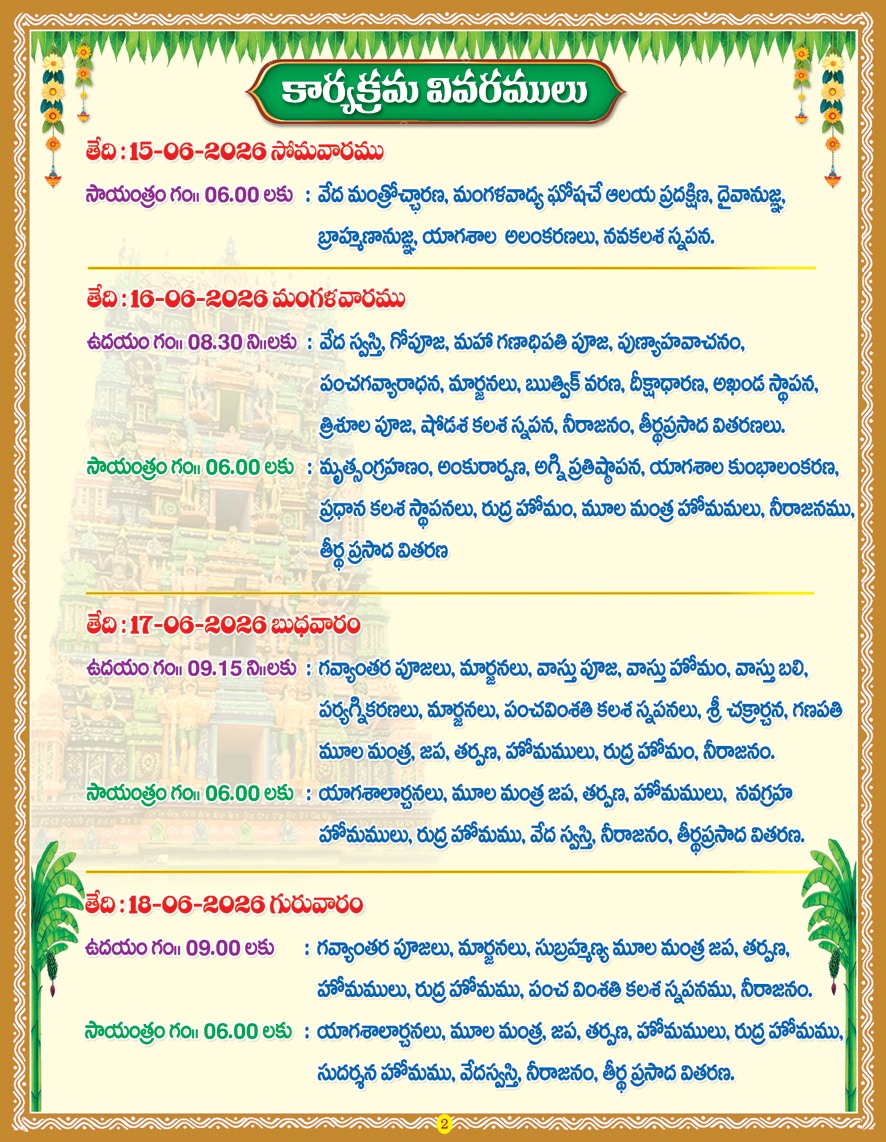 కార్యక్రమ వివరములు
తేది : 15-06-2026 సోమవారము
సాయంత్రం గం॥ 06.00 లకు : వేద మంత్రోచ్ఛారణ, మంగళవాద్య ఘోషచే ఆలయ ప్రదక్షిణ, దైవానుజ్ఞ,
బ్రాహ్మణానుజ్ఞ, యాగశాల అలంకరణలు, నవకలశ స్నపన.
తేది : 16-06-2026 మంగళవారము
ఉదయం గం॥ 08.30 ని॥లకు : వేద స్వస్తి, గోపూజ, మహా గణాధిపతి పూజ, పుణ్యాహవాచనం,
పంచగవ్యారాధన, మార్జనలు, ఋత్విక్ వరణ, దీక్షాధారణ, అఖండ స్థాపన,
త్రిశూల పూజ, షోడశ కలశ స్నపన, నీరాజనం, తీర్థప్రసాద వితరణలు.
సాయంత్రం గం॥ 06.00 లకు : మృత్సంగ్రహణం, అంకురార్పణ, అగ్ని ప్రతిష్ఠాపన, యాగశాల కుంభాలంకరణ,
ప్రధాన కలశ స్థాపనలు, రుద్ర హోమం, మూల మంత్ర హోమమలు, నీరాజనము,
తీర్థ ప్రసాద వితరణ
తేది : 17-06-2026 బుధవారం
ఉదయం గం॥ 09.15 ని॥లకు : గవ్యాంతర పూజలు, మార్జనలు, వాస్తు పూజ, వాస్తు హోమం, వాస్తు బలి,
పర్యగ్నికరణలు, మార్జనలు, పంచవింశతి కలశ స్నపనలు, శ్రీ చక్రార్చన, గణపతి
మూల మంత్ర, జప, తర్పణ, హోమములు, రుద్ర హోమం, నీరాజనం.
సాయంత్రం గం॥ 06.00 లకు : యాగశాలార్చనలు, మూల మంత్ర జప, తర్పణ, హోమములు, నవగ్రహ
హోమములు, రుద్ర హోమము, వేద స్వస్తి, నీరాజనం, తీర్థప్రసాద వితరణ.
తేది : 18-06-2026 గురువారం
ఉదయం గం॥ 09.00 లకు : గవ్యాంతర పూజలు, మార్జనలు, సుబ్రహ్మణ్య మూల మంత్ర జప, తర్పణ,
హోమములు, రుద్ర హోమము, పంచ వింశతి కలశ స్నపనము, నీరాజనం.
సాయంత్రం గం॥ 06.00 లకు : యాగశాలార్చనలు, మూల మంత్ర, జప, తర్పణ, హోమములు, రుద్ర హోమము,
సుదర్శన హోమము, వేదస్వస్తి, నీరాజనం, తీర్థ ప్రసాద వితరణ.
2